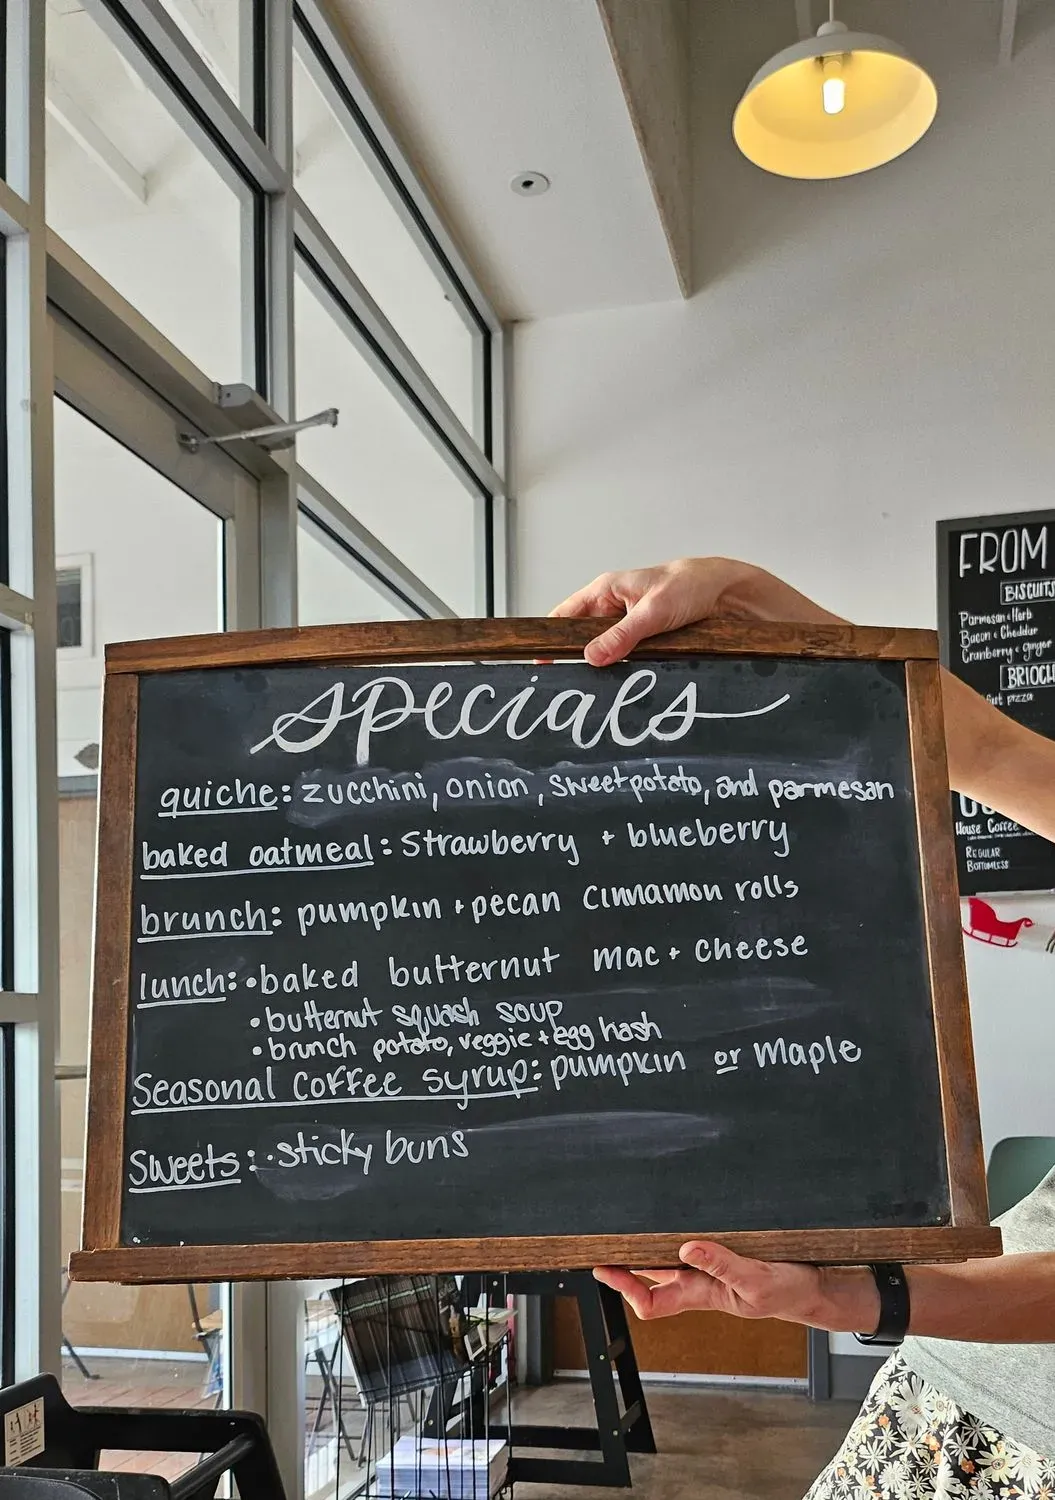 specials
quiche: zucchini, onion, sweet potato, and parmesan
baked oatmeal: Strawberry + blueberry
brunch: pumpkin + pecan cinnamon rolls
lunch: • baked butternut mac + cheese
• butternut squash soup
• brunch potato, veggie + egg hash
Seasonal Coffee Syrup: pumpkin or Maple
Sweets: • sticky buns
FROM
BISCUITS
Parmesan + Herb
Bacon + Cheddar
Cranberry + ginger
BRIOCH
pizza
House Coffee
REGULAR
BOTTOMLESS